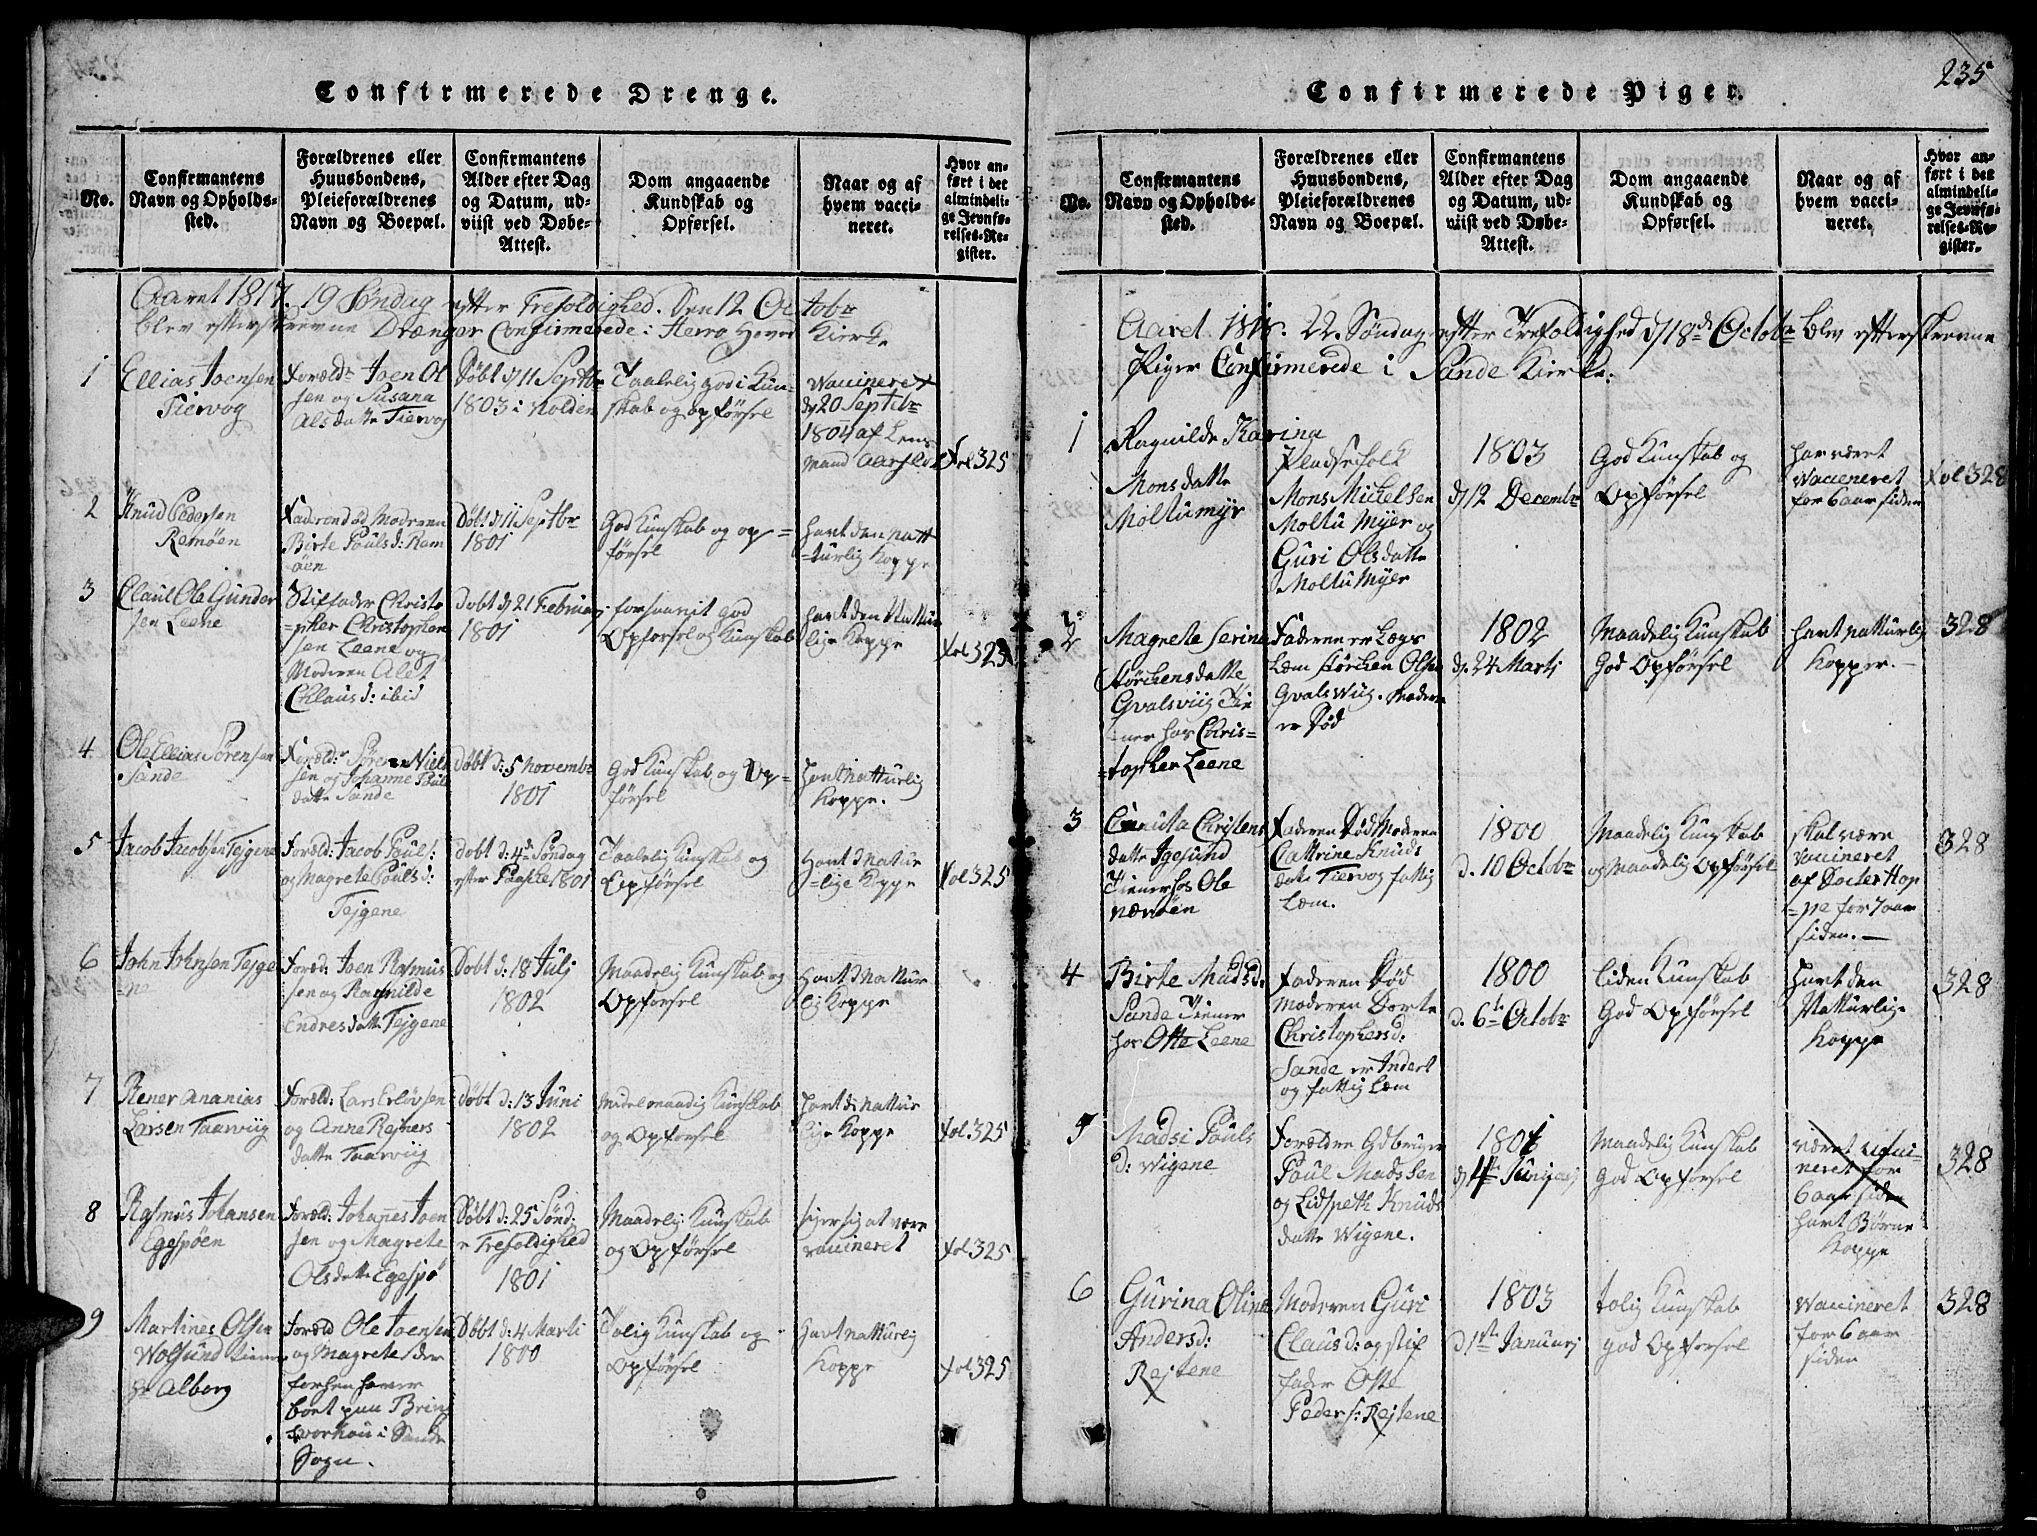 Confirmerede Drenge.
No.
Confirmantens
Navn og Opholds-
sted.
Forældrenes eller
Huusbondens,
Pleieforældrenes
Navn og Boepæl.
Confirmantens
Alder efter Dag
og Datum, ud-
viist ved Døbe-
Attest.
Dom angaaende
Kundskab og
Opførsel.
Naar og af
hvem vacci-
neret.
Hvor an-
ført i det
almindeli-
ge Jevnfø-
relses-Re-
gister.
Aaret 1817. 19 Søndag efter Trefoldighed. Den 12 Octobr
blev efterskrevne Drænger Confirmerede i Herrø Hoved Kirke
1
Ellias Joensen
Tiervog
Foreldr Joen Ol
sen og Susana
Alsdatte Tiervog
Døbt d 11 Septbr
1803 i Volden
Taalelig god i Kun
skab og opførsel
Vaccineret
d 20 Septbr
1804 af Lens
mand Aarflot
Fol 325
2
Knud Pedersen
Remøen
Faderen død Moderen
Birte Pouls d: Rem
øen
Døbt d 11 Septbr
1801
God Kunskab og op=
førsel
havt den natt
=turlig Koppe
3
Claus Ole Gunder
sen Leene
Stiffader Christo
=pher Christopher
sen Leene og
Moderen Alet
Chlaus d: ibid
Dobt d 21 Februarj
1801
forsaavit god
Opforsel og Kunskab
havt den Nattur
lige Koppe
Fol 325
4
Ole Ellias Sørensen
Sande
Foreld: Søren Niel
sen og Johanne Poul
datte Sande
Døbt d: 5 Novembr
1801
God Kunskab og Op=
førsel
havt Natturlig
Koppe.
5
Jacob Jacobsen Tejgene
Foreld: Jacob Pouls:
og Magrete Pouls d:
Tejgene
Dobt d: 4de Søndag
efter Paaske 1801
Taalelig Kunskab og
Opførsel
Havt d Natur
=lige Koppe
Fol 325
6
John Johnsen Tejge
=ne
Foreld: Joen Rasmus
sen og Ragnilde
Endresdatte Tejgene
Dobt d: 18 Julj
1802
Maadelig Kunskab og
Opførsel
Havt d Nattur
lig Koppe
7
Rener Ananias
Larsen Taarviig
Foreld: Lars Erlovsen
og Anne Rejners
datte Taarviig
Døbt d: 13 Juni
1802
Midelmaadig Kunskab
og Opførsel
havt d: Nattur
lige Koppe
Fol. 325
8
Rasmus Johansen
Egespøen
Foreld: Johanes Joen
sen og Magrete
Olsdatte Egespø
Døbt d: 25 Sønd:
e Trefoldighed
1801
Maadelig Kunskab
og Opførsel
siger sig at være
vaccineret
Fol 325
9
Martines Olsen
Wolsund tiener
hr Alborg
Foreld Ole Joensen
og Magrete / der
forhen henver
bort paa Brin
svorhou i Sande
Sogn.
Døbt d: 4 Marti
1800
Tolig Kunskab og
Opførsel
Havt natturlig
Koppe
Fol 325
235
Confirmerede Piger.
No.
Confirmantens
Navn og Opholds-
sted.
Forældrenes eller
Huusbondens,
Pleieforældrenes
Navn og Boepæl.
Confirmantens
Alder efter Dag
og Datum, ud-
viist ved Døbe-
Attest.
Dom angaaende
Kundskab og
Opførsel.
Naar og af
hvem vacci-
neret.
Hvor an-
ført i det
almindeli-
ge Jevnfø-
relses-Re-
gister.
Aaret 1818. 22. Søndag efter Trefoldighed d 18de Octobr blev efterskrevne
Piger Confirmerede i Sande Kirke.
1
Ragnilde Karina
Monsdatte
Moltumyr
Pladsefolk
Mons Michelsen
Moltu Myer og
Guri Olsdatte
Moltu Myer
1803
d 12 Decembr
God Kunskab og
Opførsel
har været
Vaccineret
for 6 aar siden
Fol 328
2
Magrete Serine
Størchensdatte
Gvalsviig Tie
=ner hos Chris=
=topher Leene
Faderen er Legs
Lem Størchen Olsen
Gvalsviig. Moderen
er Død
1802
d. 24 Marti
Maadelig Kunskab
God Opførsel
havt natturlig
Kopper.
328
3
Canuta Christens
datte Igesund
Tiener hos Ole
Nærøen
Faderen Død Moderen
Cattrine Knuds
datte Tiervog fattig
Lem.
1800
d. 10 Octobr
Maadelig Kunskab
og Maadelig Opførsel
skal være
Vaccineret
af Docter Hop
=pe for 7 aar
siden.
328
4
Birte Mads d:
Sande Tiener
hos Otte Leene
Faderen Død
Moderen Dorte
Christophers d:
Sande er Inderst
og fattig Lem
1800
d. 6te Octobr
liden Kunskab
God Opførsel
Havt den
Natturlige
Koppe
328
5
Madsi Pouls
d: Wigene
Foreldre Gdbruger
Poul Madssen
og Lidspeth Knuds
datte Wigene.
1801
d 4de Junij
Maadelig Kunskab
God Opførsel
været vacci-
neret for
6 aar siden
havt Børne
Koppe
328
6
Gurina Olina
Anders d:
Rejtene
Moderen Guri
Claus d: og stif
fader Otte
Peders: Rejtene
1803
d 1ste Januarj
tolig Kunskab
god Opførsel
Vaccineret
for 6 aar
siden
328